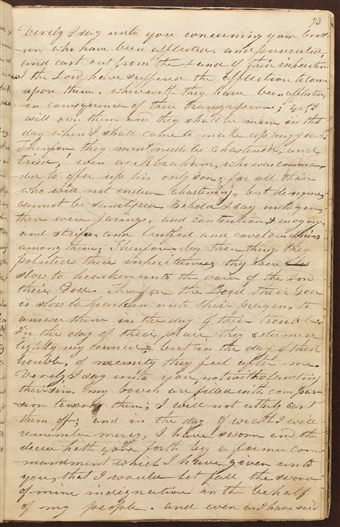 73
Verily I say unto you concerning your breth
ren who have been afflicted and persecuted
and cast out from the land of their inheritance
the Lord have suffered the affliction to come
upon them, wherewith they have been afflicted
in consequence of their transgressions; yet I
will own them and they shall be mine in that
day when I shall come to make up my jewels
Therefore they must needs be chastened, and
tried, even as Abraham, who was comman
ded to offer up his only son; for all those
who will not endure chastening, but deny me
cannot be sanctified. Behold I say unto you
there were jarings, and contentions envyings
and strifes and lustful and covetous desires
among them; Therefore by these things they
polluted their inheritances; they were
slow to hearken unto the voice of the Lord
their God. Therefore the Lord their God
is slow to hearken unto their prayers, to
answer them in the day of their trouble.
In the day of their peace they esteemed
lightly my council but in the day of their
trouble, of necessity they feel after me.
Verily I say unto you, notwithstanding
their sins my bowels are filled with compas
sion towards them; I will not utterly cast
them off; and in the day of wrath I will
remember mercy, I have sworn and the
decree hath gone forth by a former com
mandment which I have given unto
you, that I would let fall the sword
of mine indignation in the behalf
of my people. and even as I have said